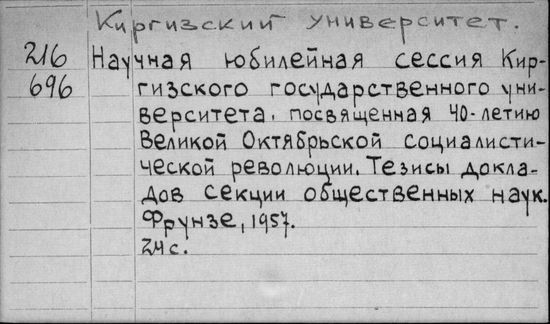 Киргизский университет.
216 Научная юбилейная сессия Кир-
696 гизского государственного уни-
верситета, посвященная 40-летию
Великой Октябрьской социалисти-
ческой революции. Тезисы докла-
дов секции общественных наук.
Фрунзе, 1957.
24 с.